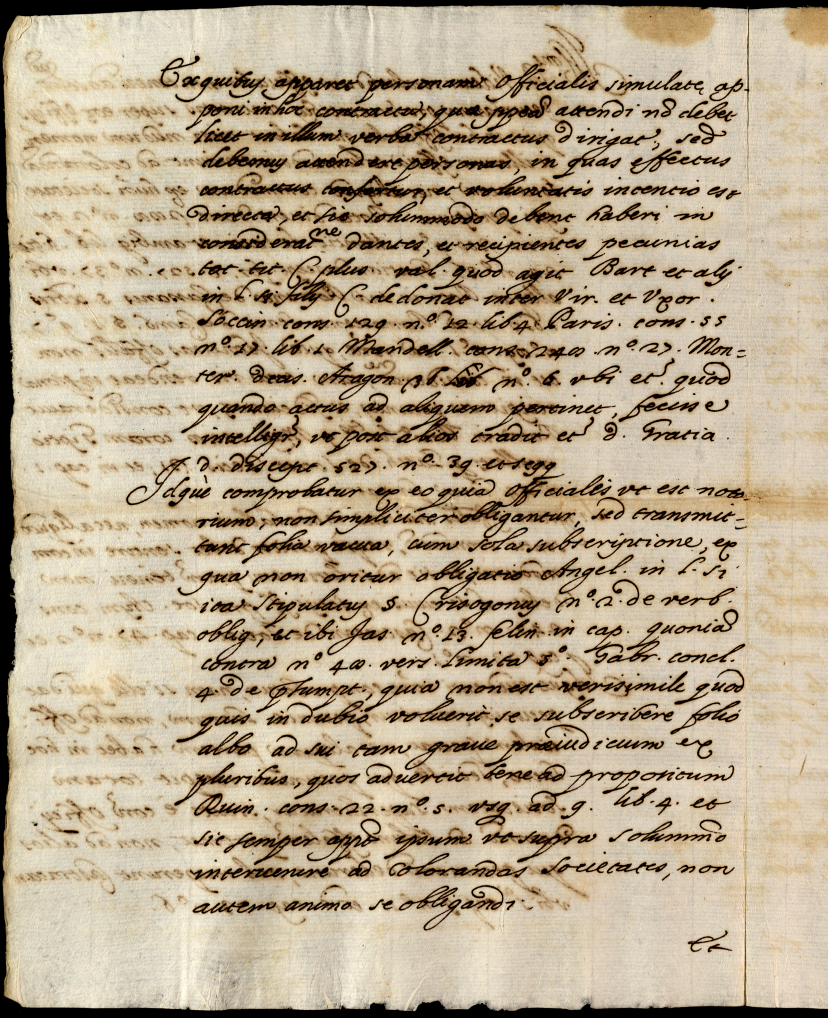 Ex quibus apparet personam Officialis simulate ap-
poni in hoc contractu, quæ attendi nō debet
licet in illum verba contractus dirigat, sed
debemus attendere personas, in quas effectus
contractus confertur, et voluntatis intentio est
directa, et sic solummodo debent haberi in
considerat.ne dantes, et recipientes pecunias
tot. tit. C. plus val. quod agit Bart et alij
in l. si filij C. de donat inter Vir. et Uxor.
Soccin cons. 129 n.º 12 lib 4 Paris. cons. 55
n.º 17 lib. 1. Mandell. cons. n.º 27. Mon=
ter. decis. Aragon. 36 n.º 6. ubi et. quod
quando actus ad aliquem pertinet, fecisse
intelligr, ut post alios tradit et d. Gratia.
d. discept. 527. n.º 39. et seqq
Idquè comprobatur ex eo quia Officialis ut est noto
rium, non simpliciter obligantur, sed transmit=
tunt folia vacua, cum sola subscriptione, ex
qua non oritur obligatio Angel. in l. si
ita stipulatus § Crisogonus n.º 2. de verb.
oblig, et ibi Jas. n.º 13. felin. in cap. quoniā
contra n.º 40. vers. limita 3.º Gabr. concl.
4. de psumpt, quia non est verisimile quod
quis in dubio voluerit se subscribere folio
albo ad sui tam graue præiudicium ex
pluribus, quos advertit bene ad propositum
Ruin. cons. 22. n.º 5. usq. ad 9. lib. 4. et
sic semper ipsum ut supra solummō
intervenire ad colorandas societates, non
autem animo se obligandi.
Et